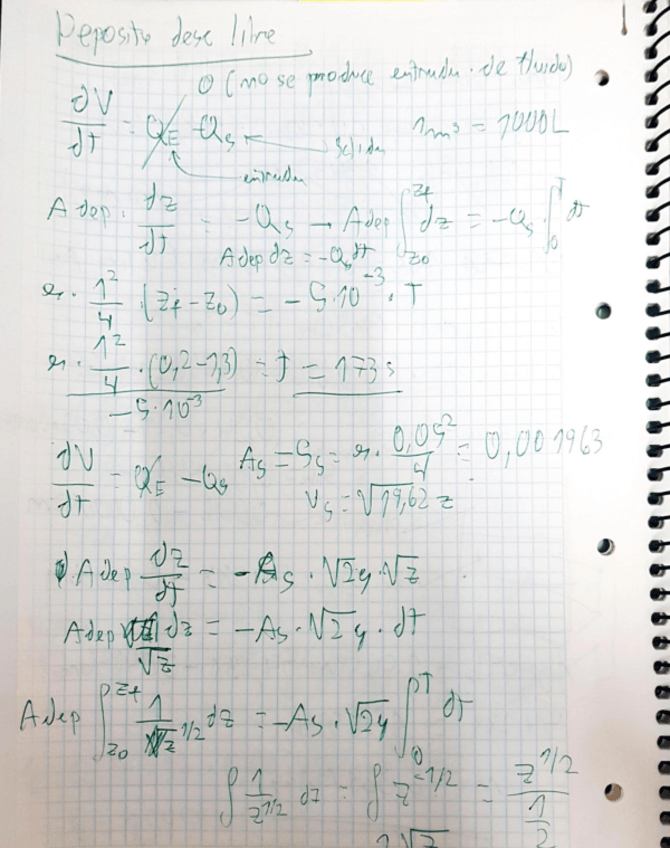 Deposito desc libre
0 (no se produce entrada de fluido)
dV/dt = Q_E - Q_s ← salida 1m³ = 1000L
entrada
A dep. dz/dt = -Q_s → A dep ∫_{z0}^{zf} dz = -Q_s ∫_0^T dt
A dep dz = -Q_s dt
π · 1²/4 · (zf - z0) = - 5·10^-3 · T
π · 1²/4 · (0,2-1,3) / -5·10^-3 = T = 173 s
dV/dt = Q_E - Q_s A_s = S_s = π · 0,05²/4 = 0,001963
V_s = √19,62 z
A dep dz/dt = -A_s · √2g · √z
A dep dz/√z = -A_s · √2g · dt
A dep ∫_{z0}^{zf} 1/z^1/2 dz = -A_s · √2g ∫_0^T dt
∫ 1/z^1/2 dz = ∫ z^-1/2 = z^1/2 / 1/2